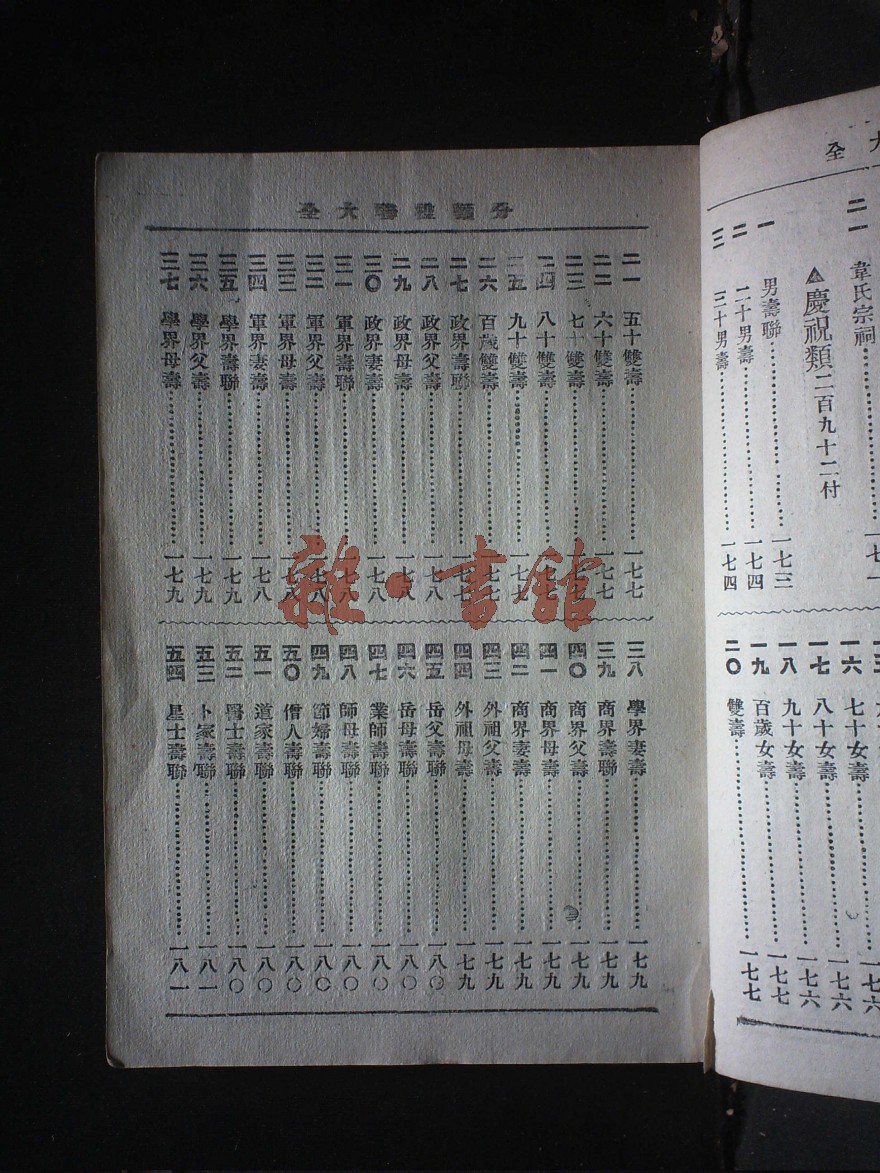 大全
二一 韋氏宗祠……一七一
▲慶祝類二百九十二付
一 男壽聯……一七三
二 二十男壽……一七四
三 三十男壽……一七四
一六 七十女壽……一七六
一七 八十女壽……一七六
一八 九十女壽……一七六
一九 百歲女壽……一七七
二〇 雙壽……一七七
分類楹聯大全
二一 五十雙壽……一七七
二二 六十雙壽……一七七
二三 七十雙壽……一七七
二四 八十雙壽……一七七
二五 九十雙壽……一七七
二六 百歲雙壽……一七七
二七 政界壽聯……一七七
二八 政界父壽……一七八
二九 政界母壽……一七八
三〇 政界妻壽……一七八
三一 軍界壽聯……一七八
三二 軍界父壽……一七八
三三 軍界母壽……一七八
三四 軍界妻壽……一七八
三五 學界壽聯……一七九
三六 學界父壽……一七九
三七 學界母壽……一七九
三八 學界妻壽……一七九
三九 商界壽聯……一七九
四〇 商界父壽……一七九
四一 商界母壽……一七九
四二 商界妻壽……一七九
四三 外祖父壽……一七九
四四 外祖母壽……一七九
四五 岳父壽聯……一八〇
四六 岳母壽聯……一八〇
四七 業師壽聯……一八〇
四八 師母壽聯……一八〇
四九 節婦壽聯……一八〇
五〇 僧人壽聯……一八〇
五一 道家壽聯……一八〇
五二 醫士壽聯……一八〇
五三 卜家壽聯……一八一
五四 星士壽聯……一八一
雜·書館